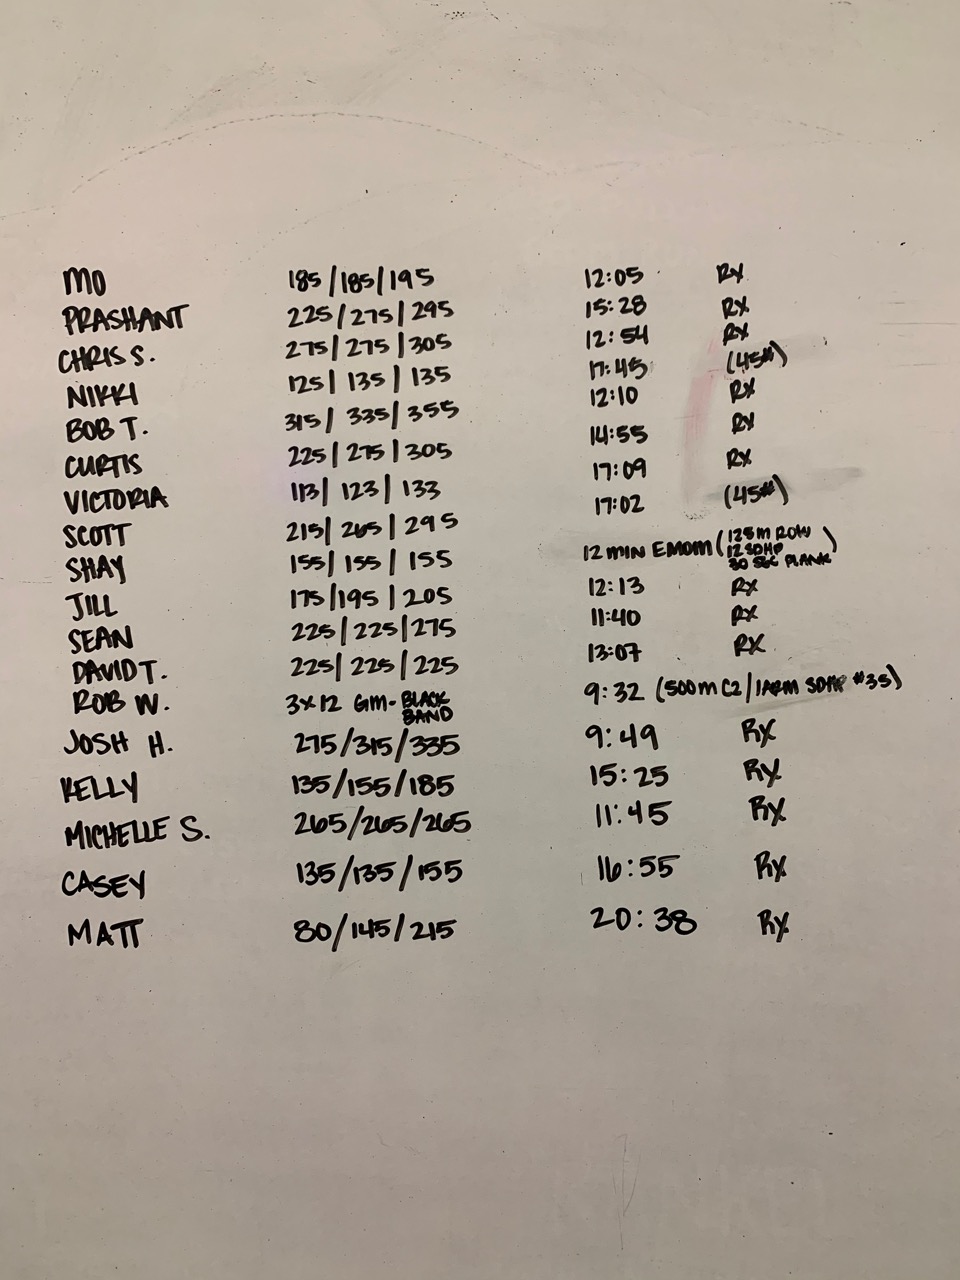 MO 185/185/195 12:05 Rx
PRASHANT 225/275/295 15:28 Rx
CHRIS S. 275/275/305 12:54 Rx
NIKKI 125/135/135 17:45 (45#)
BOB T. 315/335/355 12:10 Rx
CURTIS 225/275/305 14:55 Rx
VICTORIA 113/123/133 17:09 Rx
SCOTT 215/265/295 17:02 (45#)
SHAY 155/155/155 12 MIN EMOM (125m ROW
12 SDHP
30 SEC PLANK)
JILL 175/195/205 12:13 Rx
SEAN 225/225/275 11:40 Rx
DAVID T. 225/225/225 13:07 Rx
ROB W. 3x12 GM-BLACK
BAND 9:32 (500m C2/1ARM SDHP #35)
JOSH H. 275/315/335 9:49 Rx
KELLY 135/155/185 15:25 Rx
MICHELLE S. 265/265/265 11:45 Rx
CASEY 135/135/155 16:55 Rx
MATT 80/145/215 20:38 Rx